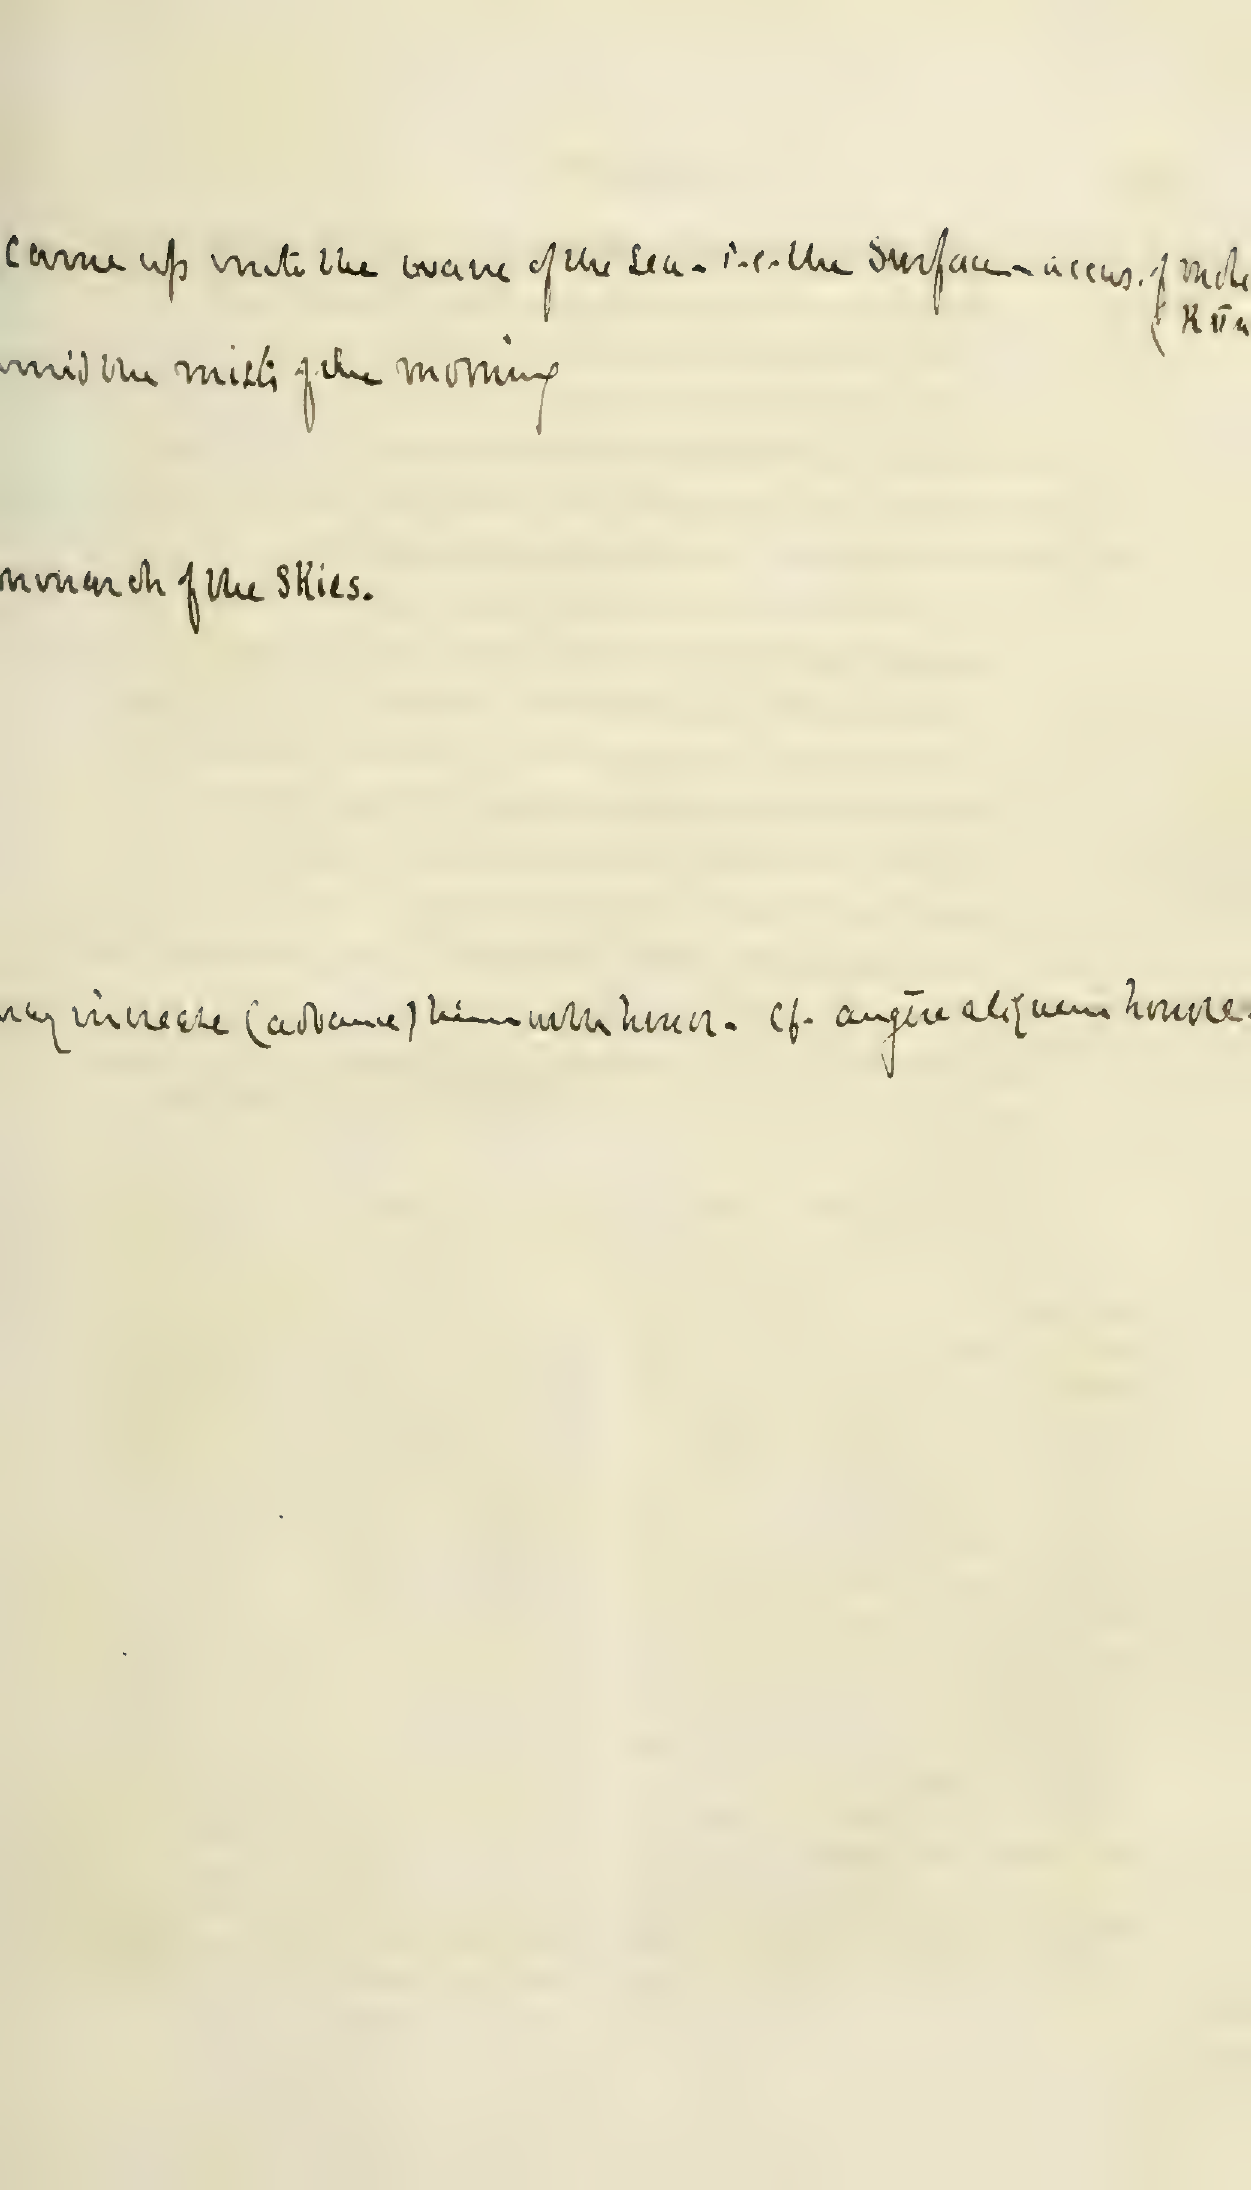 came up unto the wave of the sea - i.e. the surface - accus. of
mid the mists of the morning
monarch of the skies.
may increase (advance) him with honor. cf. augēre aliquem honore.